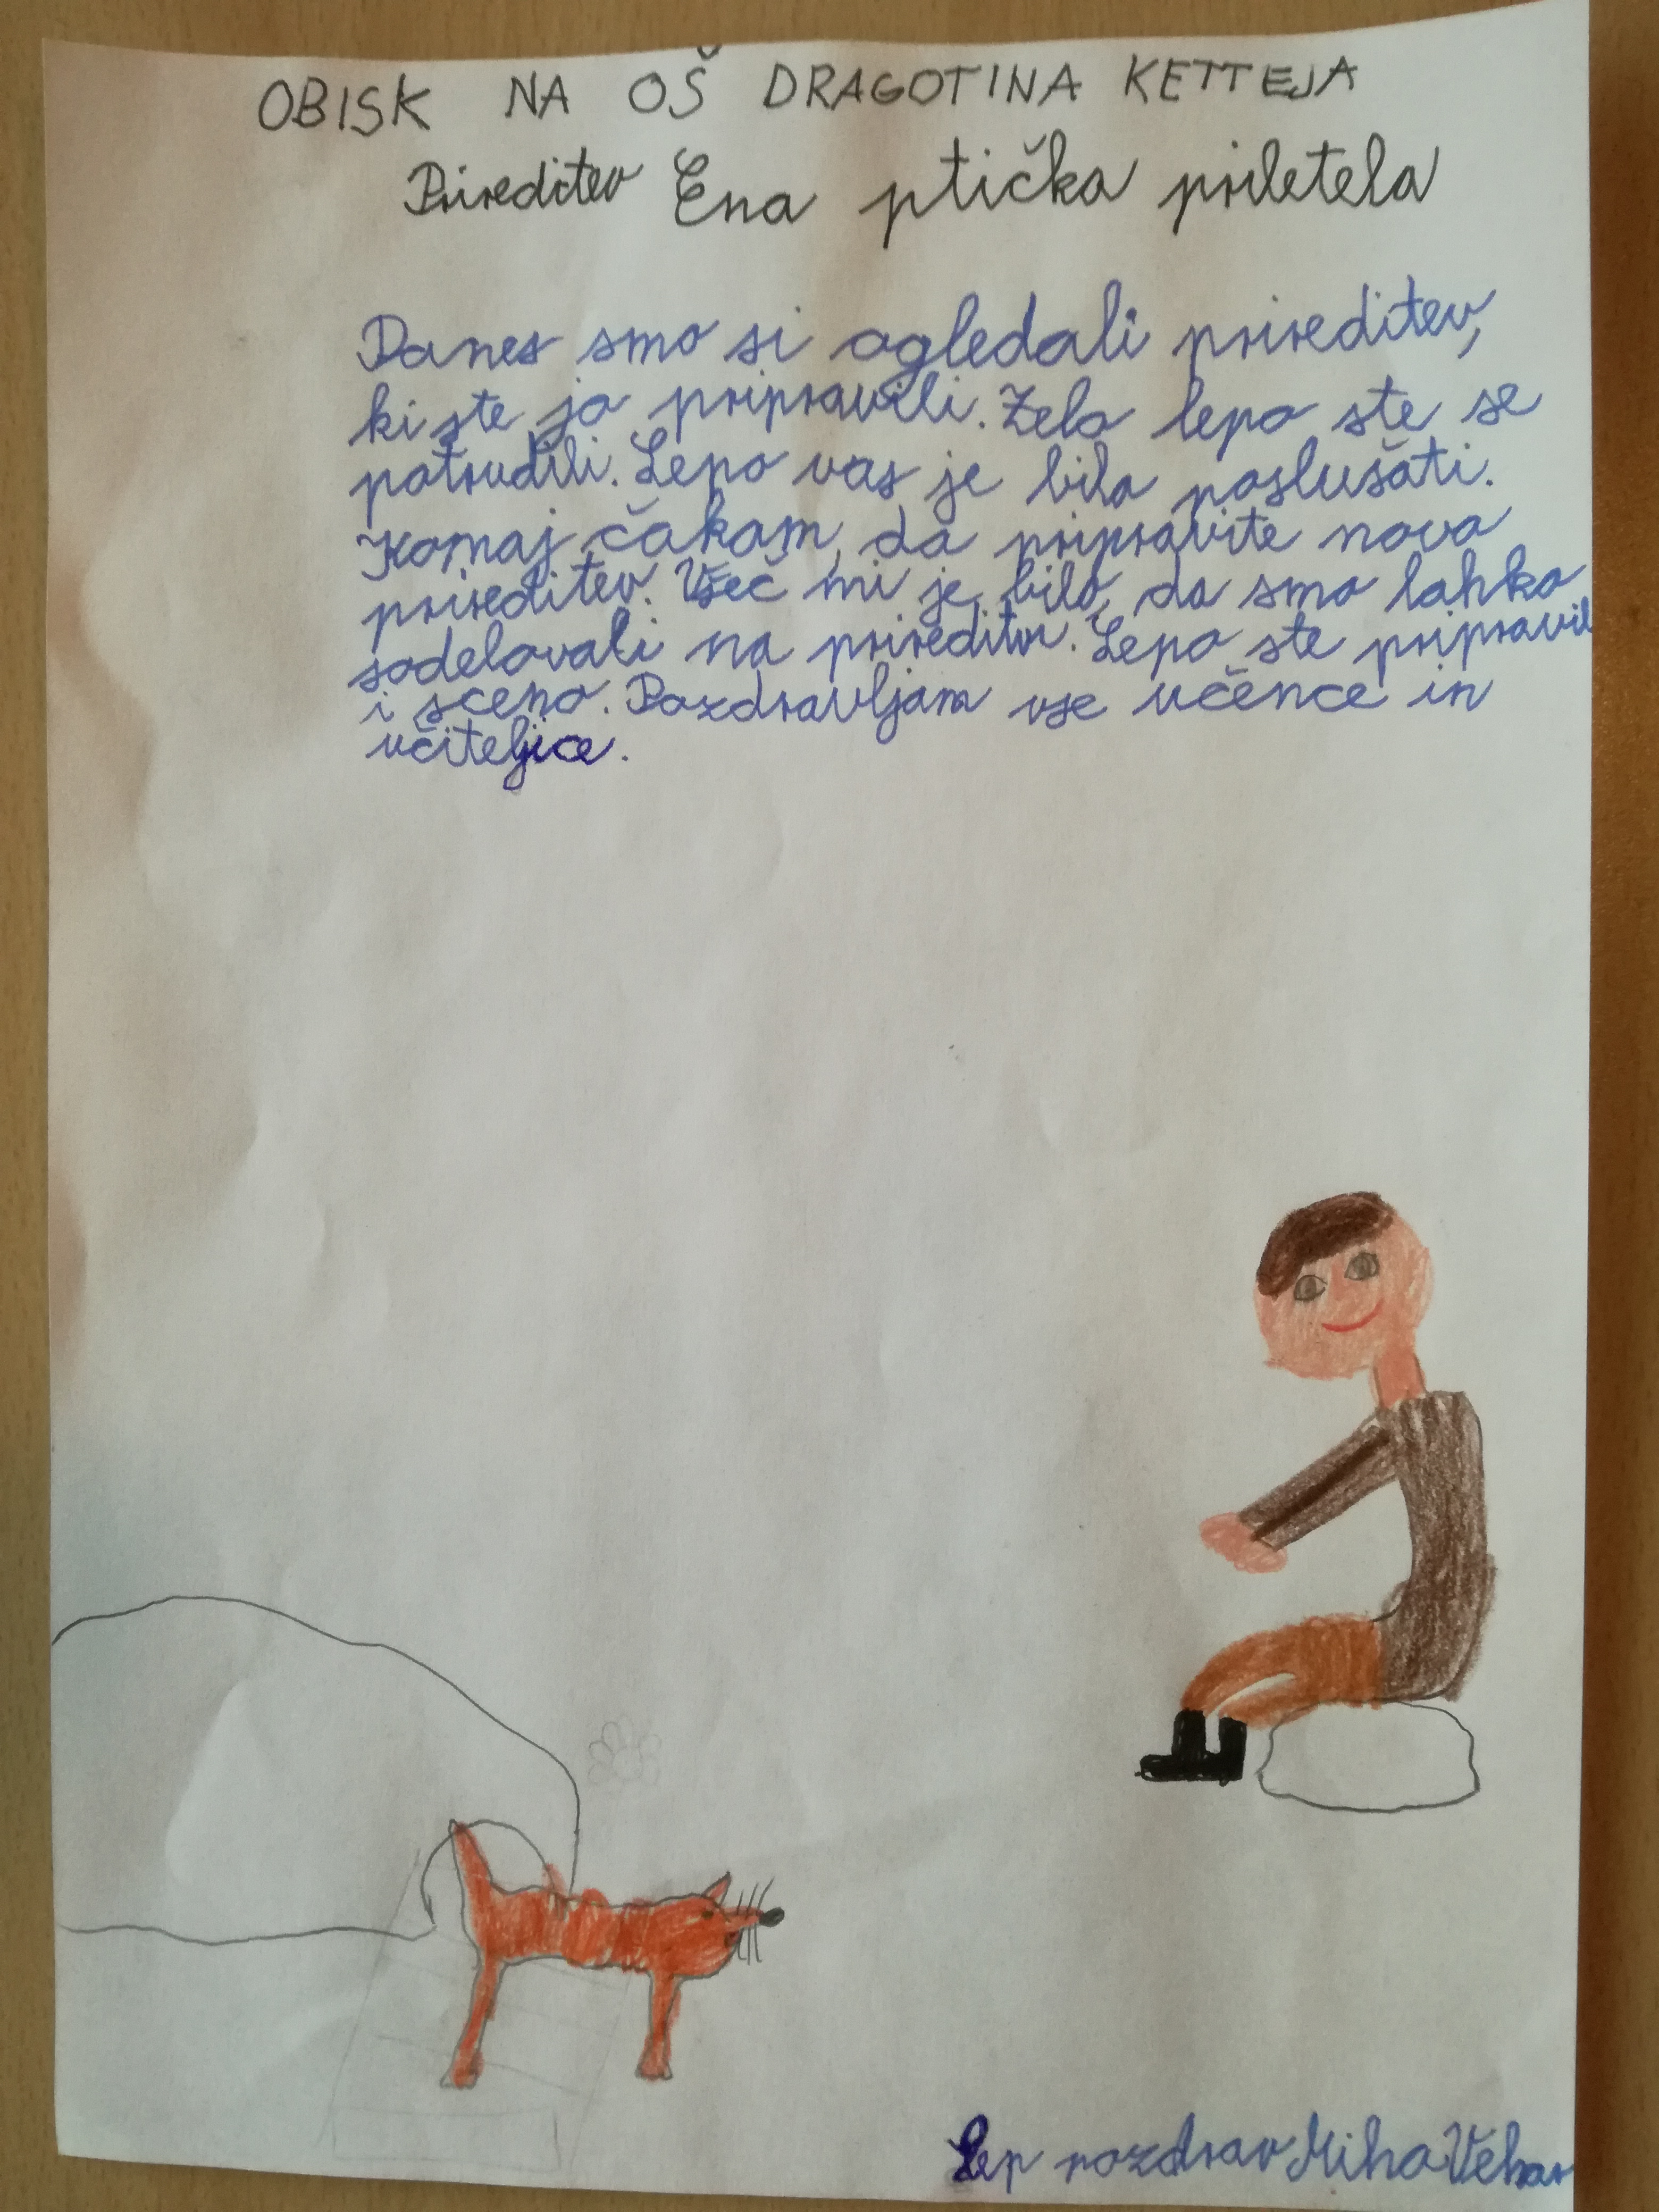 OBISK NA OŠ DRAGOTINA KETTEJA
Prireditev Ena ptička priletela
Danes smo si ogledali prireditev,
ki ste jo pripravili. Zelo lepo ste se
potrudili. Lepo vas je bilo poslušati.
Komaj čakam, da pripravite novo
prireditev. Všeč mi je bilo, da smo lahko
sodelovali na prireditvi. Lepo ste pripravil
i sceno. Pozdravljam vse učence in
učiteljice.
Lep pozdrav Miha